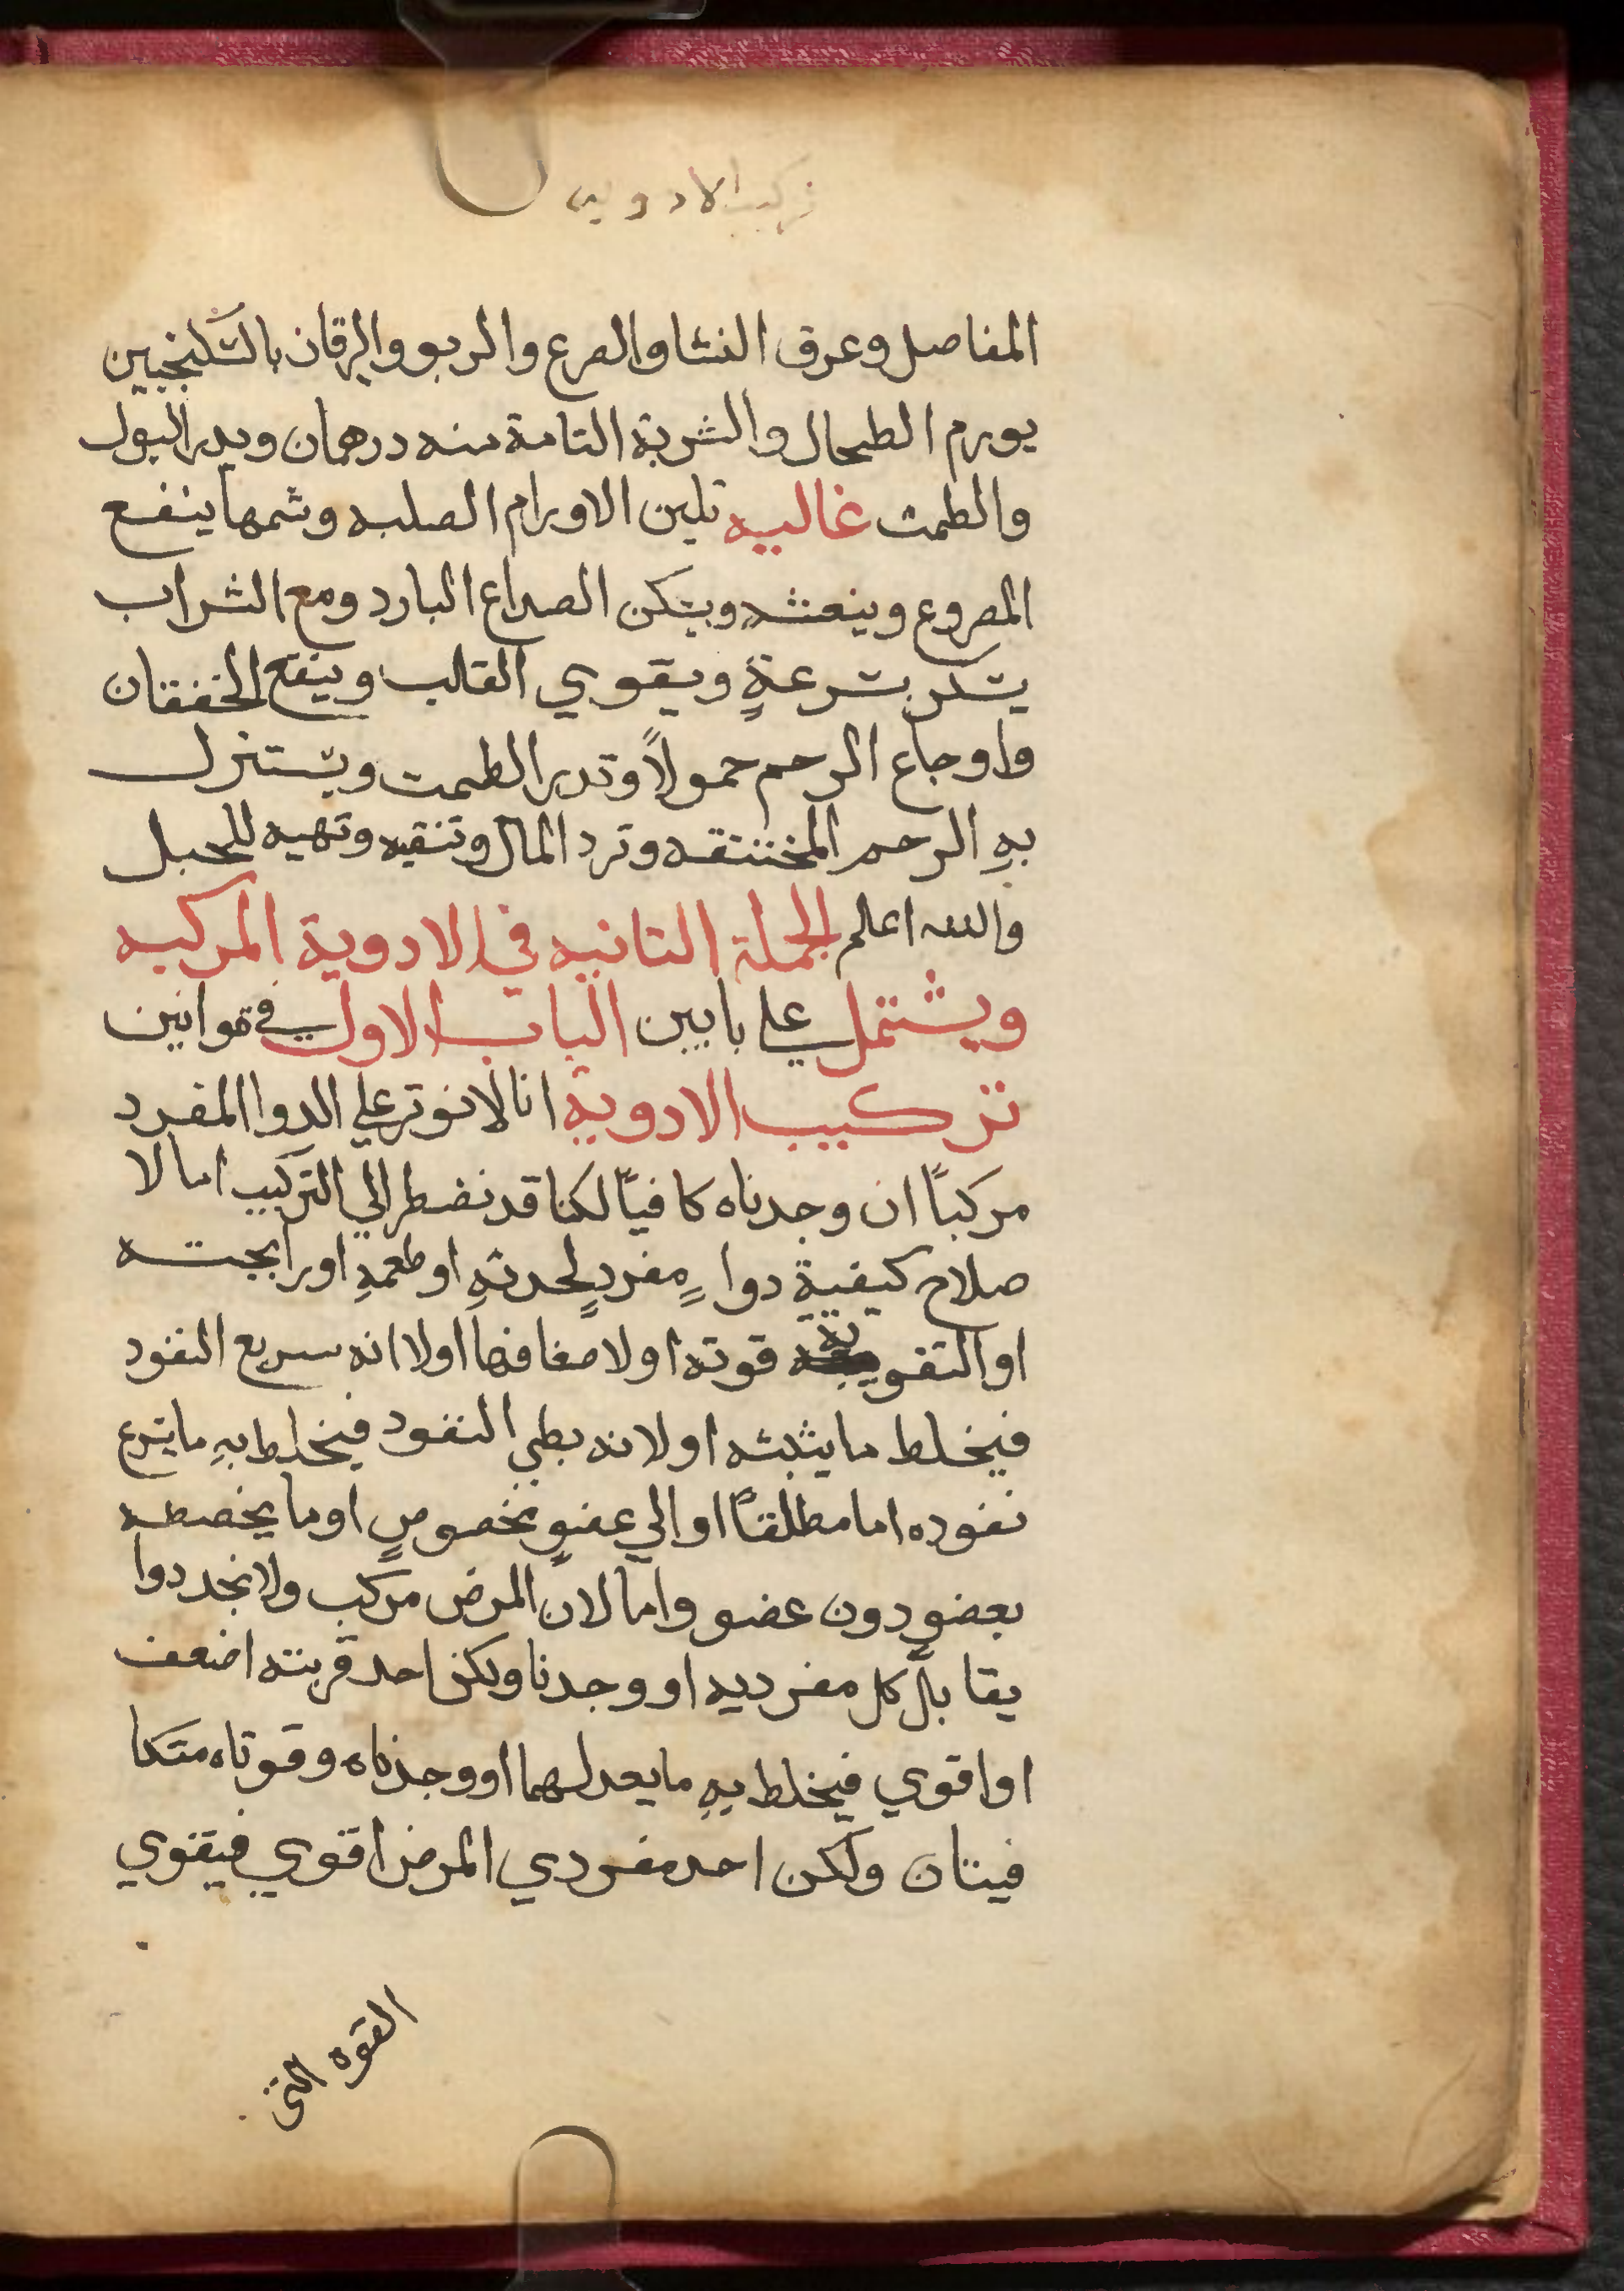 تركيب الادويه
المفاصل وعرق النسا والصرع والربو واليرقان بالسكنجبين
يورم الطحال والشربة التامة منه درهمان ويدر البول
والطمث غاليه تلين الاورام الصلبه وشمها ينفع
المصروع وينعشه ويسكن الصداع البارد ومع الشراب
يسكر بسرعةٍ ويقوي القلب وينفع الخفقان
واوجاع الرحم حمولاً وتدر الطمت ويستنزل
بهِ الرحم المختنقه وترد المال وتنقيه وتهيه للحبل
والله اعلم الجملة الثانيه في الادوية المركبه
ويشتمل علي بابين الباب الاول في قوانين
تركيب الادوية انا لا نوتر علي الدوا المفرد
مركباً ان وجدناه كافياً لكنا قد نضطر الي التركيب اما لا
صلاح كيفيةِ دواءٍ مفردٍ لحدتهِ او طعمهِ او رايحته
او التقوية قوته او لا ضعافها او لا انه سريع النفود
فيخلط ما يثبته او لانه بطي النفود فيخلط بهِ ما يسرع
نفوده اما مطلقاً او الي عضوٍ مخصوصٍ او ما يخصطه
بعضو دون عضو واما لان المرض مركب ولا نجد دوا
يقابل كل مفرديه او وجدنا ولكن احد قربته اضعف
او اقوي فيخلط بهِ ما يعدلهما او وجدناه وقوتاه متكا
فيتان ولكن احد مفردي المرض اقوي فيقوي
القوه التى